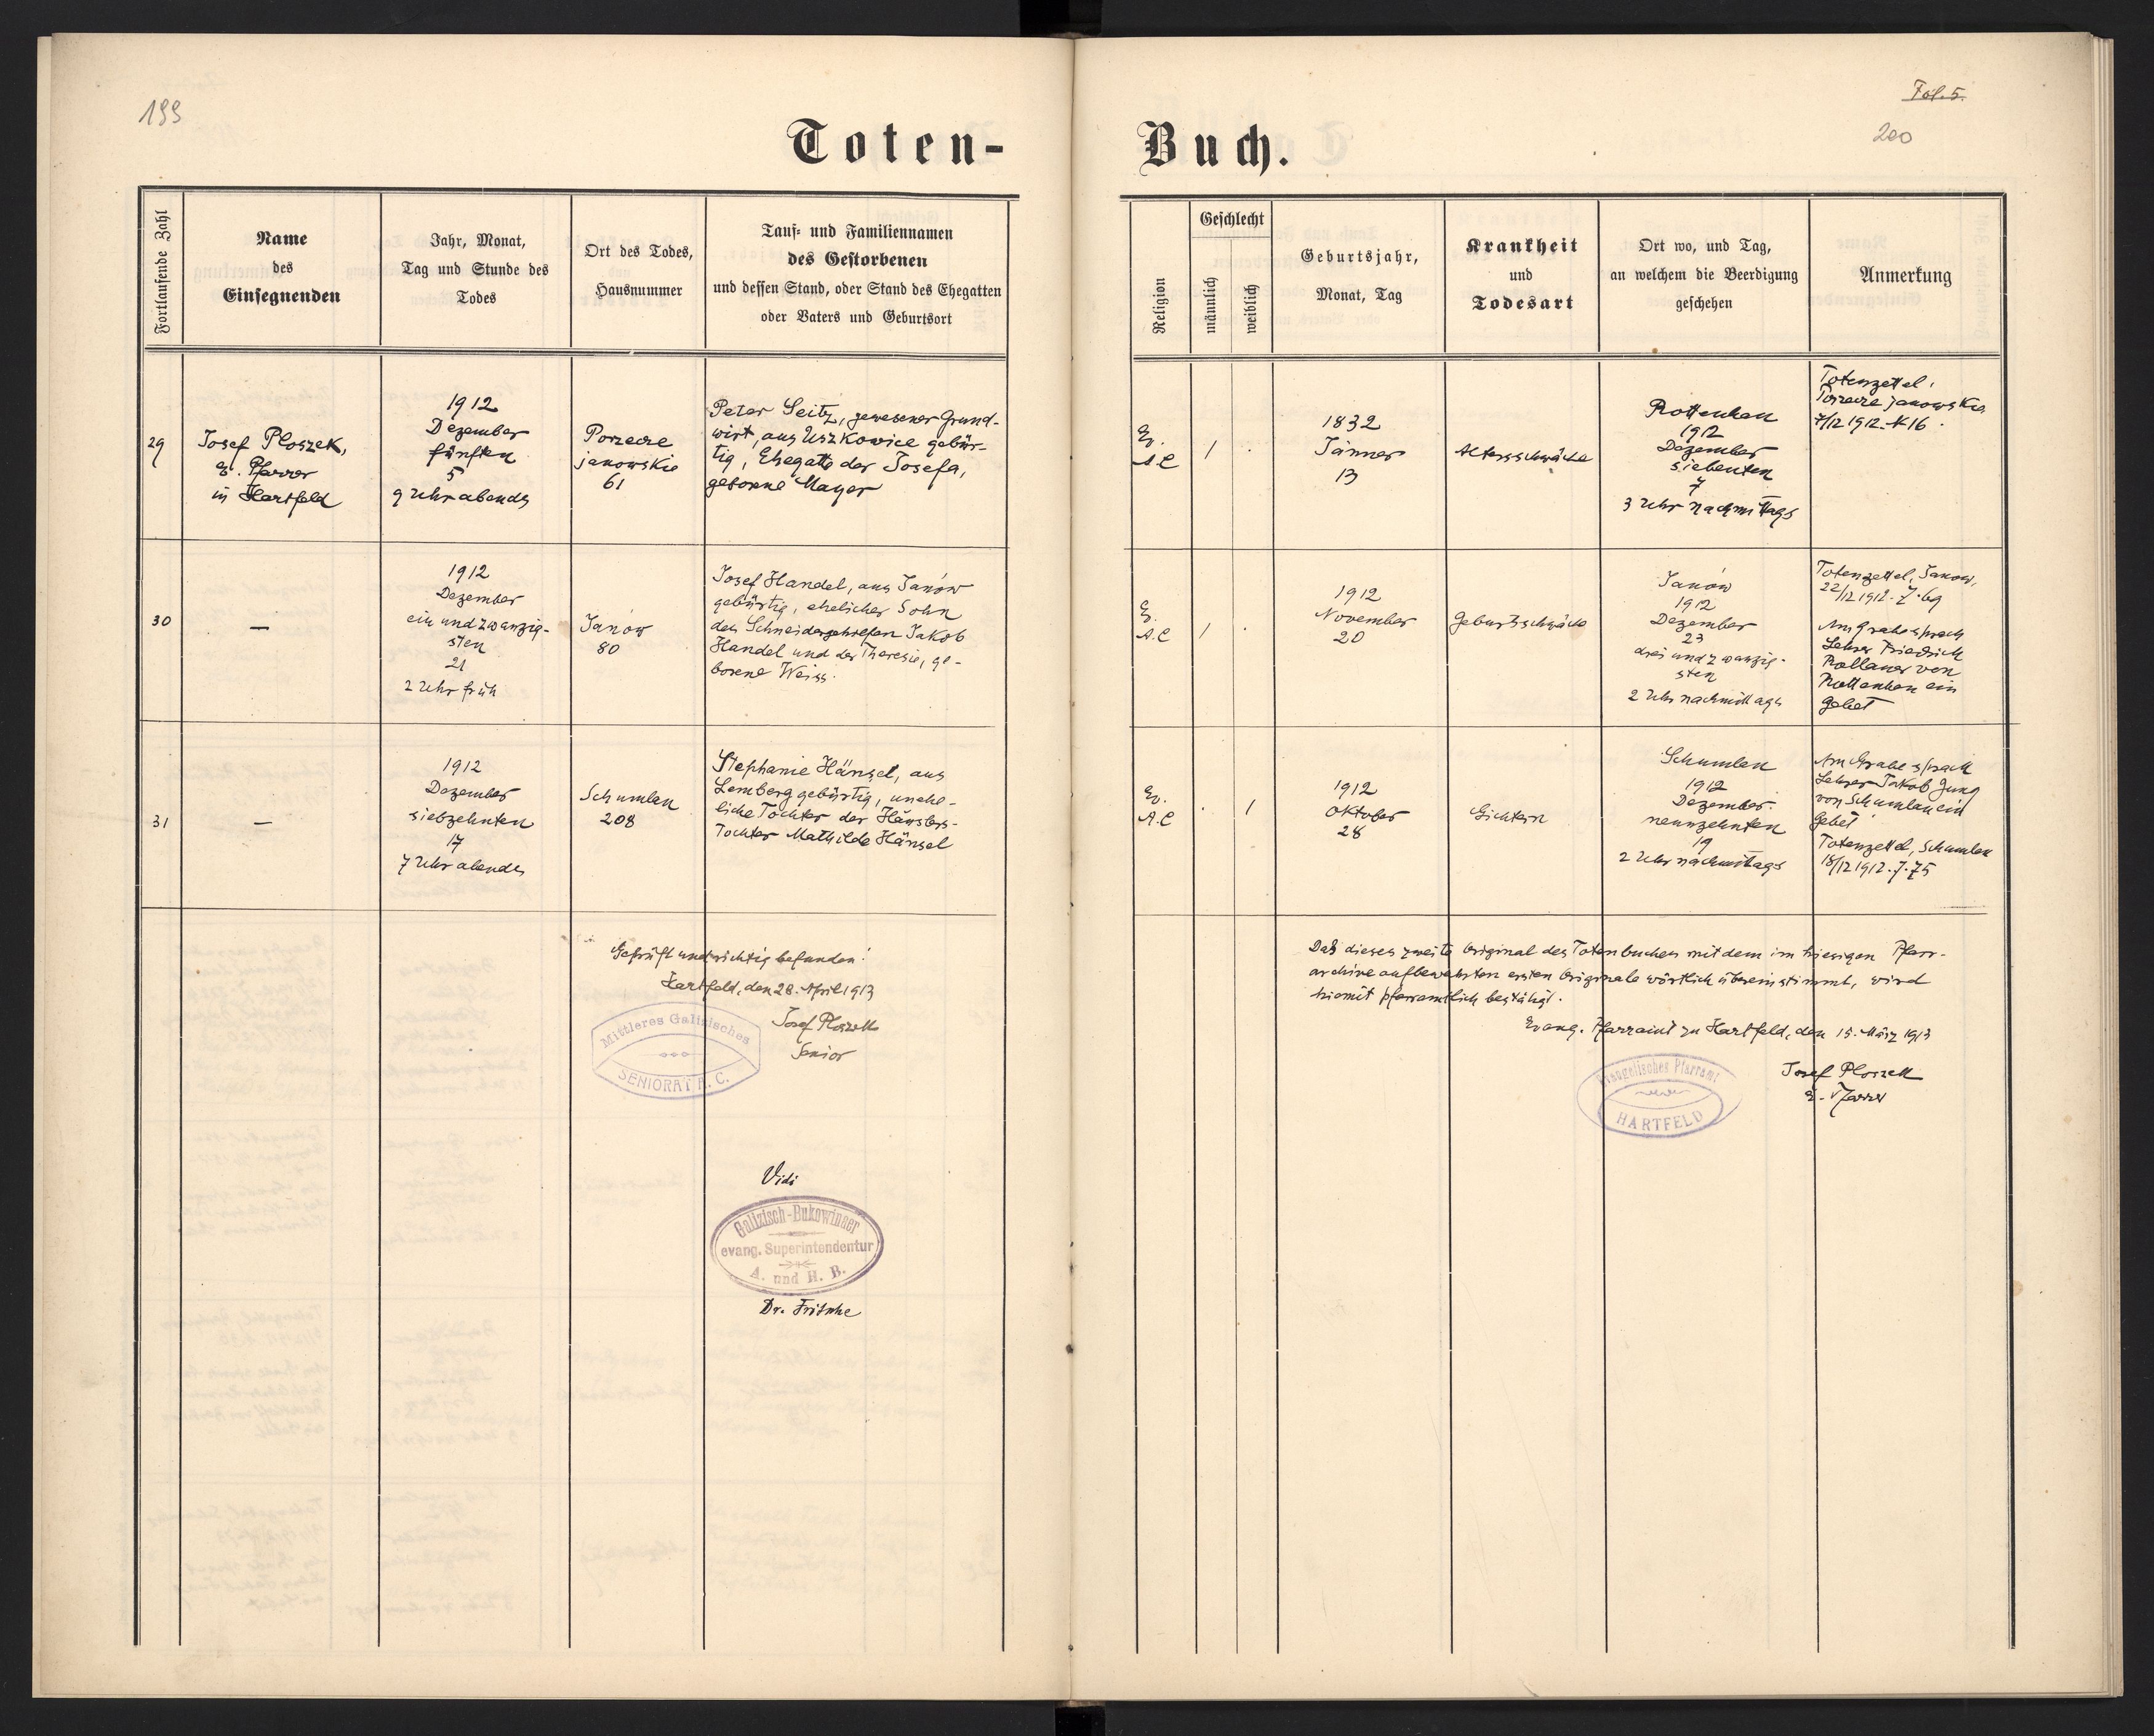 199
Toten-
Fortlaufende Zahl
Name
des
Einsegnenden
Jahr, Monat,
Tag und Stunde des
Todes
Ort des Todes,
Hausnummer
Tauf- und Familiennamen
des Gestorbenen
und dessen Stand, oder Stand des Ehegatten
oder Vaters und Geburtsort
29
Josef Ploszek,
E. Pfarrer
in Hartfeld
1912
Dezember
fünften
5
9 Uhr abends
Porzecze
janowskie
61
Peter Seitz, gewesener Grund-
wirt, aus Uszkowice gebür-
tig, Ehegatte der Josefa,
geborene Mayer
30
—
1912
Dezember
ein und zwanzig-
sten
21
2 Uhr früh
Janów
80
Josef Handel, aus Janów
gebürtig, ehelicher Sohn
des Schneidergehilfen Jakob
Handel und der Theresie, ge-
borene Weiss.
31
—
1912
Dezember
siebzehnten
17
7 Uhr abends
Schumlau
208
Stephanie Hänsel, aus
Lemberg gebürtig, unehe-
liche Tochter der Häuslers-
Tochter Mathilde Hänsel
Geprüft und richtig befunden!
Hartfeld, den 28. April 1913
Josef Ploszek
Senior
Mittleres Galizisches
SENIORAT A. C.
Vidi
Galizisch-Bukowinaer
evang. Superintendentur
A. und H. B.
Dr. Fritsche
Fol. 5.
200
Buch.
Religion
Geschlecht
männlich
weiblich
Geburtsjahr,
Monat, Tag
Krankheit
und
Todesart
Ort wo, und Tag,
an welchem die Beerdigung
geschehen
Anmerkung
Ev.
A.C
1
.
1832
Jänner
13
Altersschwäche
Rottenhan
1912
Dezember
siebenten
7
3 Uhr nachmittags
Totenzettel,
Porzecze janowskie
7/12 1912. № 16.
E.
A.C
1
.
1912
November
20
Geburtsschwäche
Janów
1912
Dezember
23
drei und zwanzig-
sten
2 Uhr nachmittags
Totenzettel, Janow,
22/12 1912. Z. 69
Am Grabe sprach
Lehrer Friedrich
Rollauer von
Rottenhan ein
Gebet
Ev.
A.C
.
1
1912
Oktober
28
Gichtern
Schumlau
1912
Dezember
neunzehnten
19
2 Uhr nachmittags
Am Grabe sprach
Lehrer Jakob Jung
von Schumlau ein
Gebet
Totenzettel, Schumlau
18/12 1912. Z. 75
Daß dieses zweite Original des Totenbuches mit dem im hiesigen Pfarr-
archive aufbewahrten ersten Originale wörtlich übereinstimmt, wird
hiemit pfarramtlich bestätigt.
Evang. Pfarramt zu Hartfeld, den 15. März 1913
Evangelisches Pfarramt
HARTFELD
Josef Ploszek
E. Pfarrer